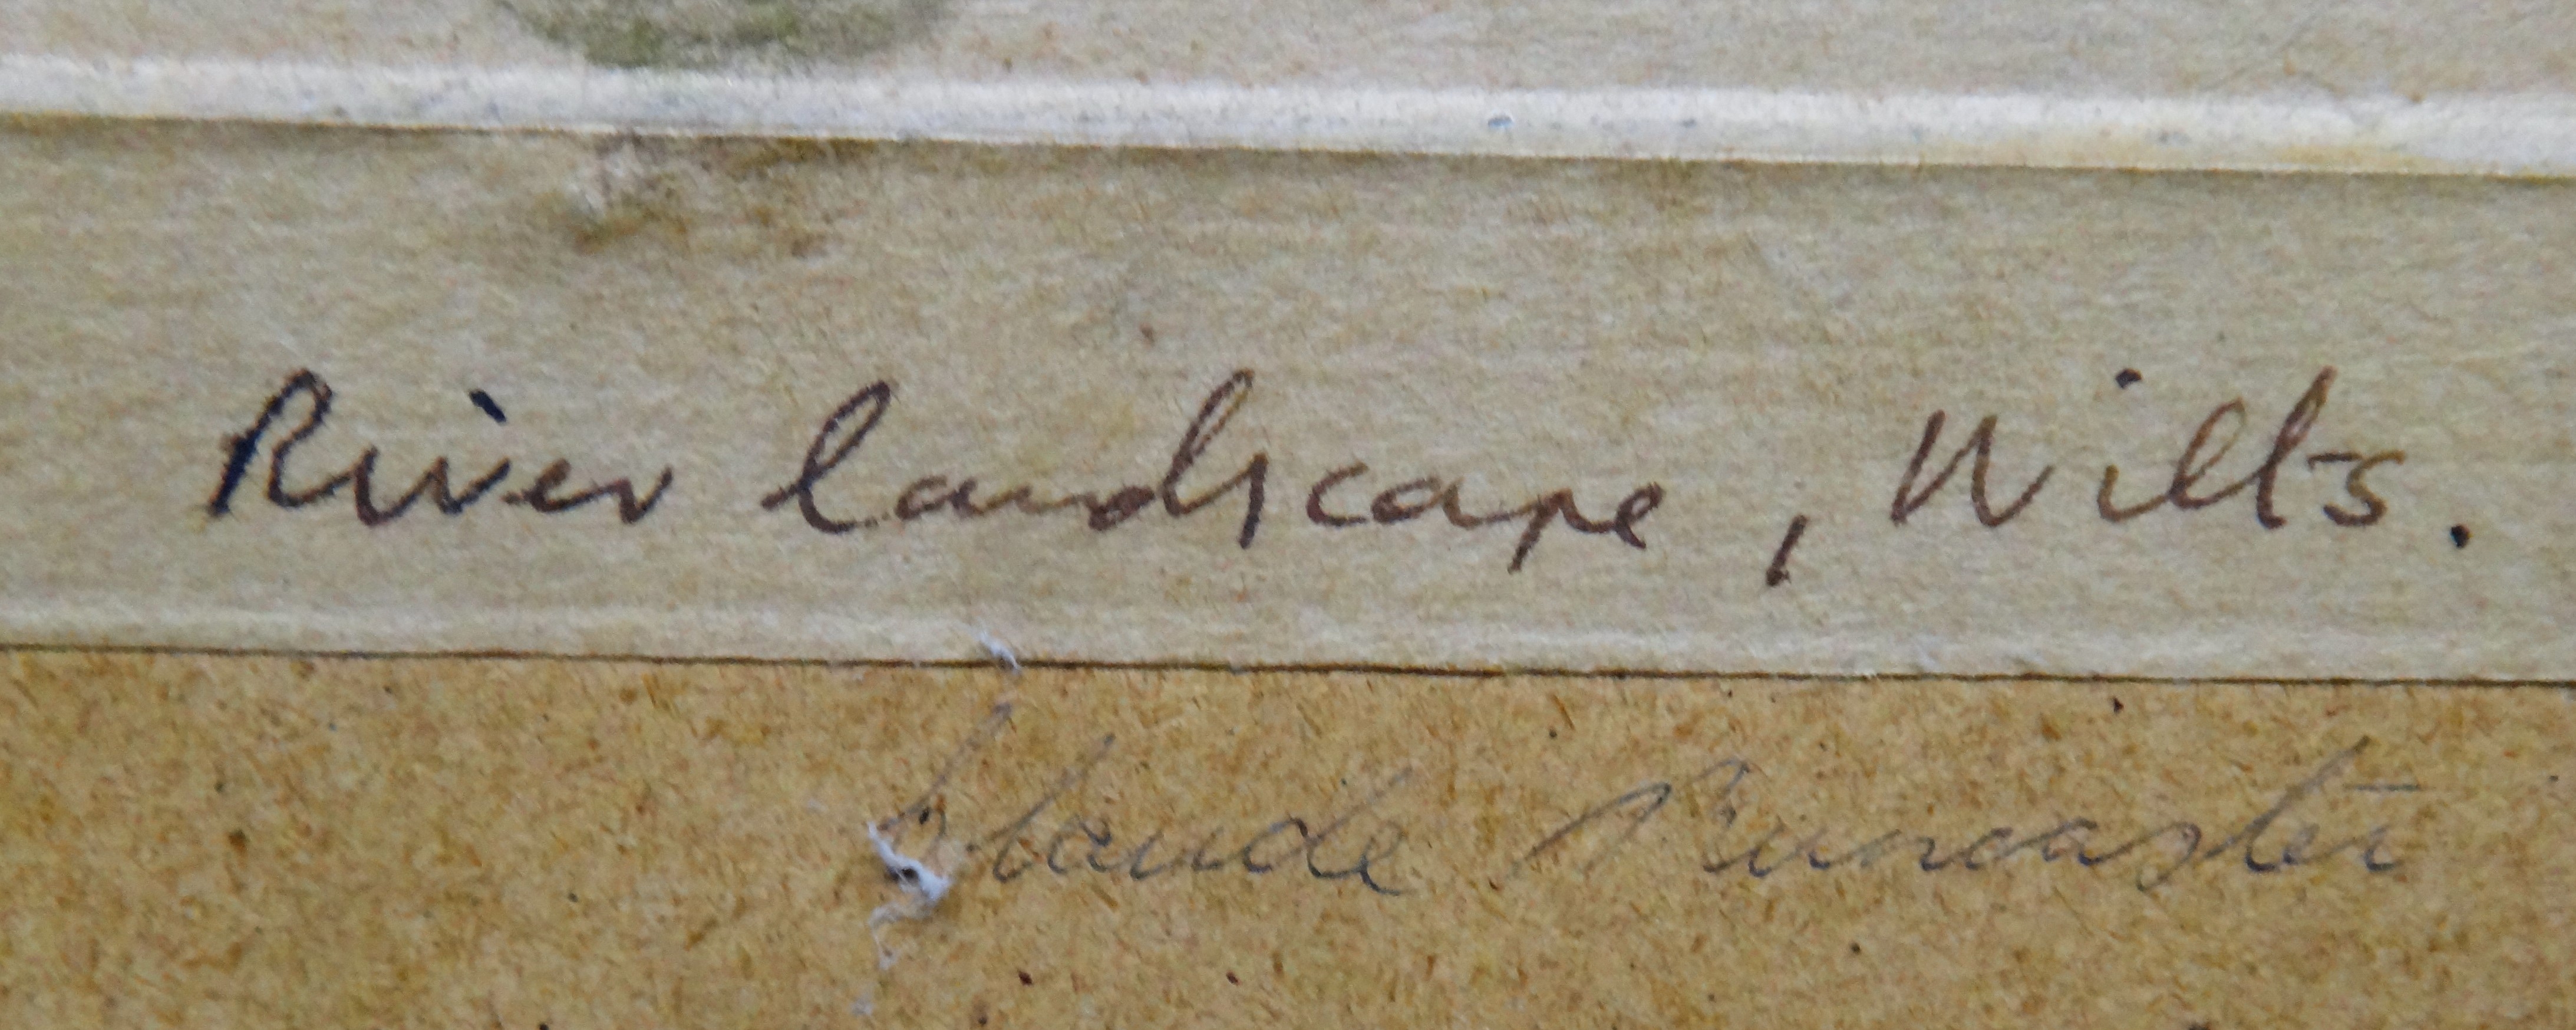 River landscape, Wilts.
Claude Muncaster